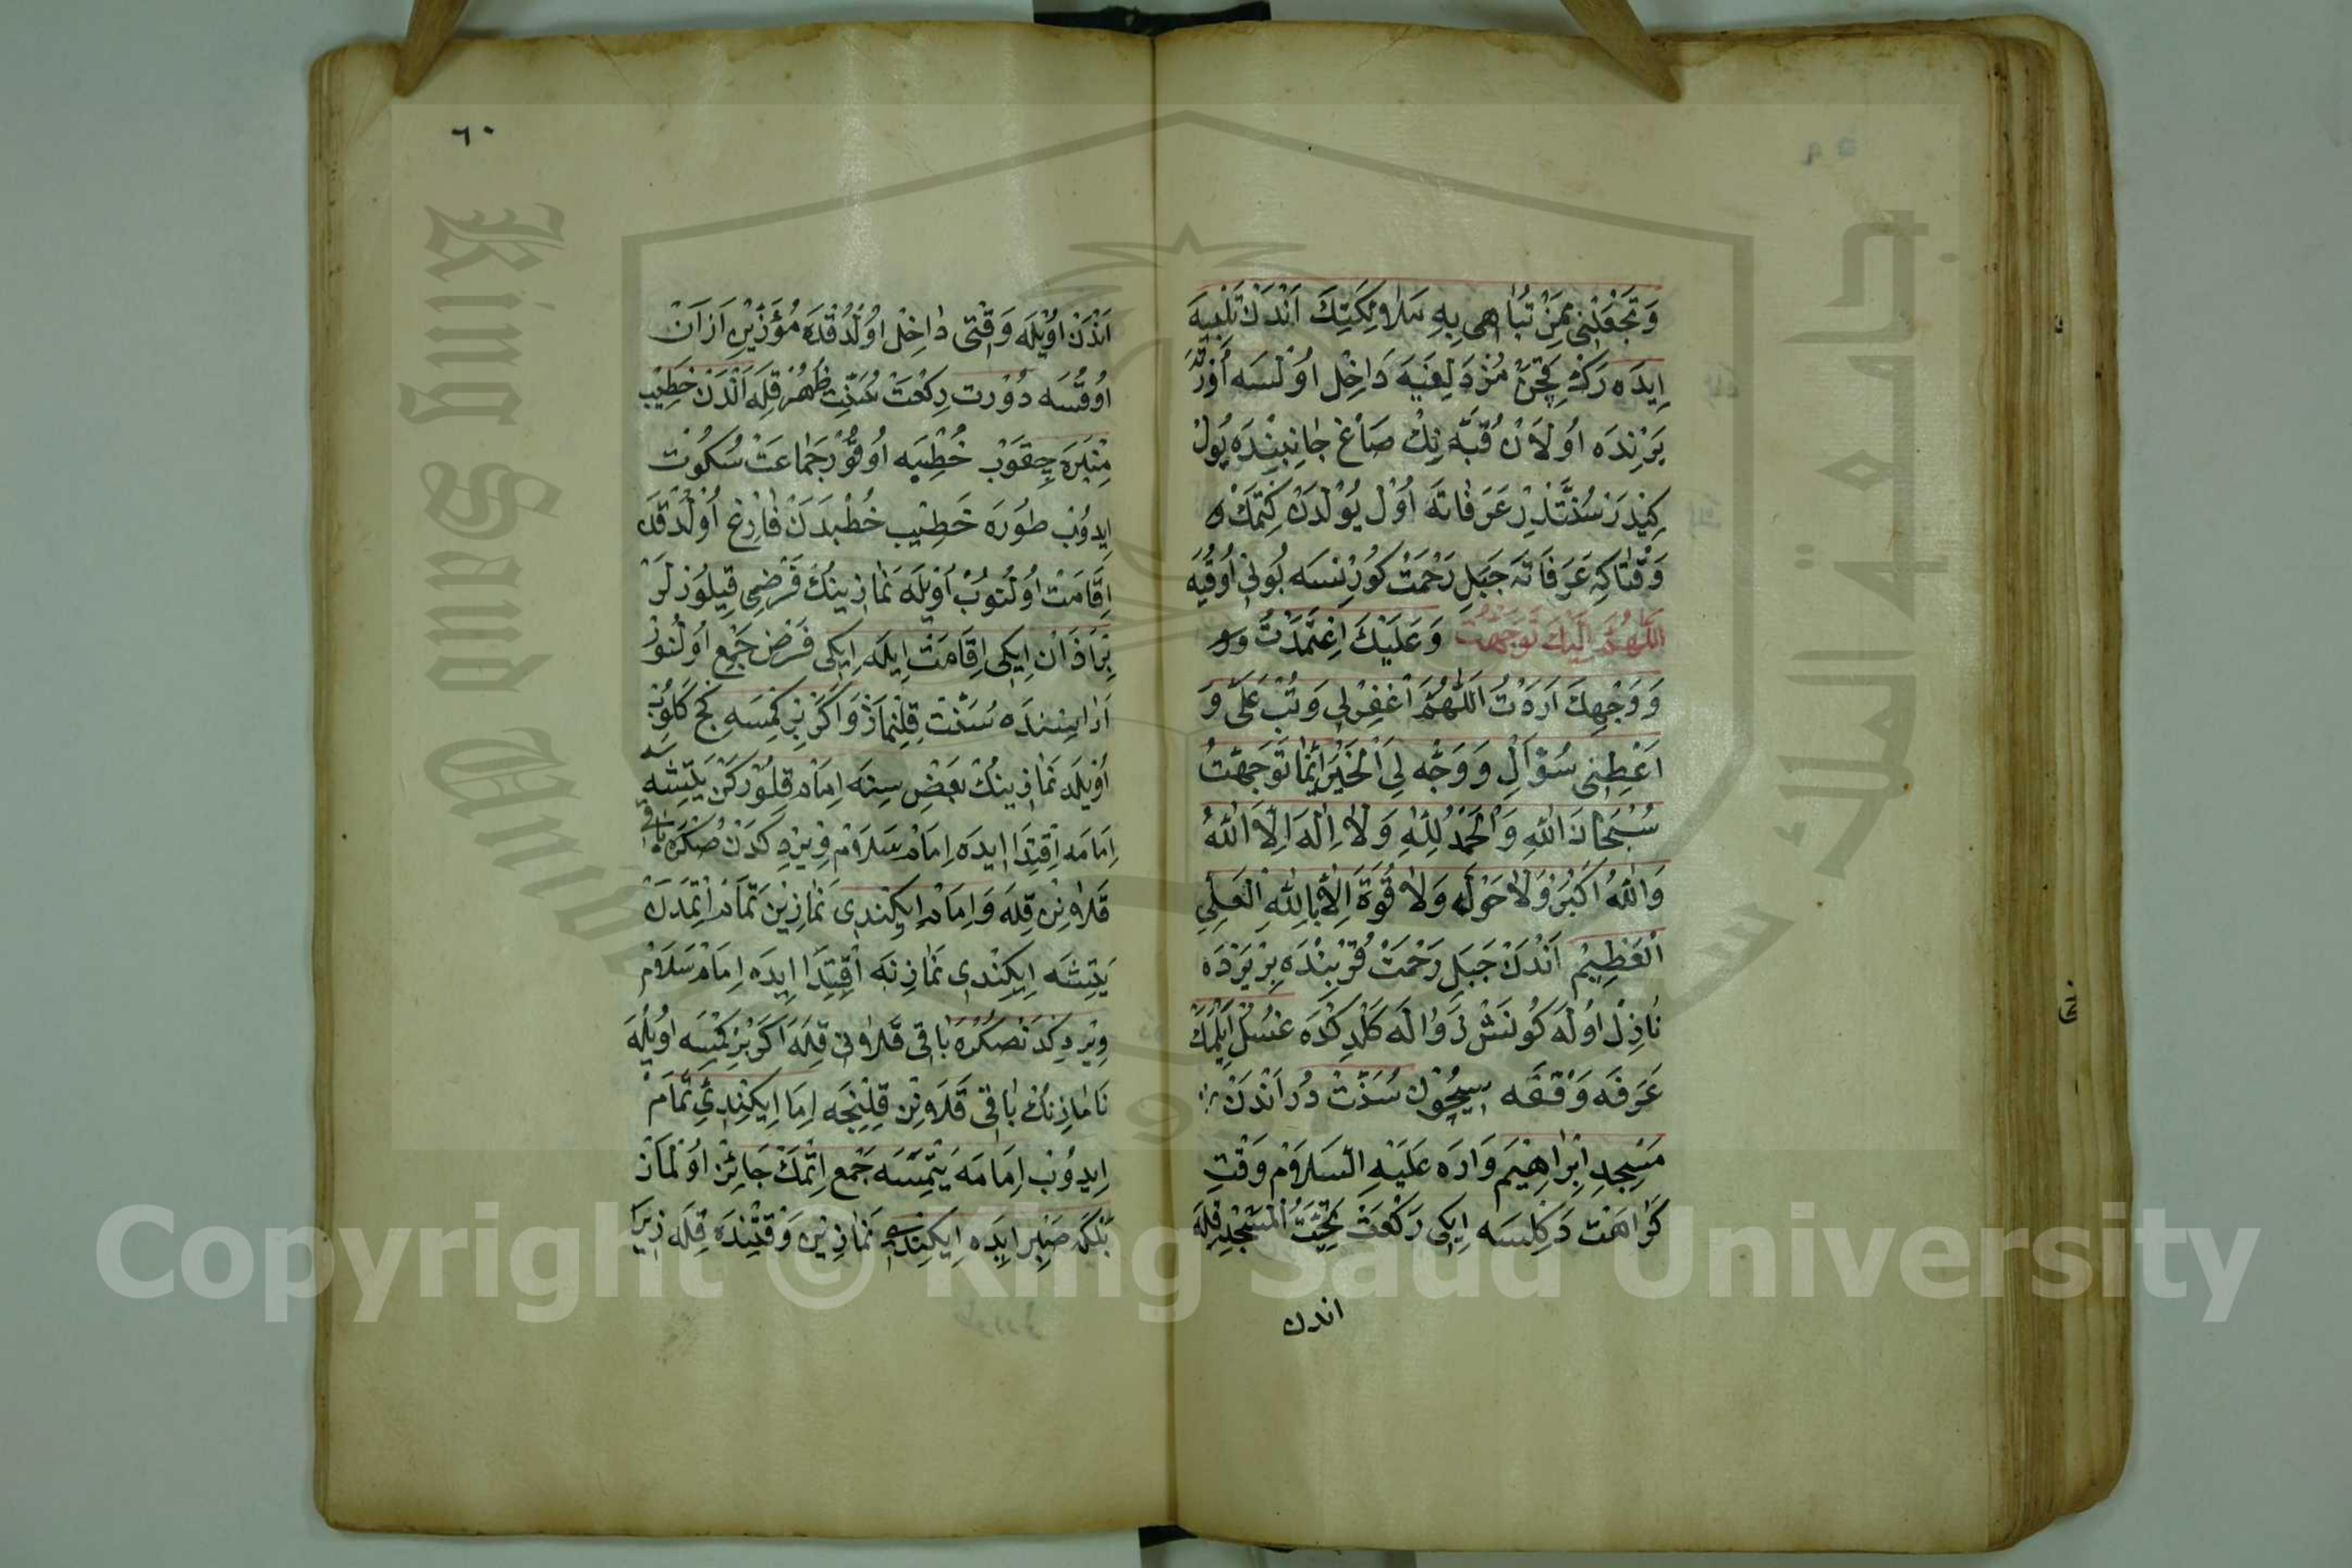 وَتَجْعَلْنِي مِمَّنْ تُبَاهِي بِهِ مَلَائِكَتَكَ اَنْدَنْ تَلْبِيَه
اِيدَه رَكْ قَچَنْ مُزْدَلِفَيَه دَاخِلْ اوُلْسَه
يَرِنْدَه اوُلَانْ قُبَّه نِكْ صَاغْ جَانِبِنْدَه يُولْ
كِيدَرْ سُنَّتْدِرْ عَرَفَاتَه اوُلْ يُولْدَنْ كِتْمَكْ
وَقْتَاكِه عَرَفَاتَه جَبَلِ رَحْمَتْ كُورِنْسَه بُونِي اُوقُيَه
اَللّٰهُمَّ اِلَيْكَ تَوَجَّهْتُ وَعَلَيْكَ اِعْتَمَدْتُ وَ
وَوَجْهِكَ اَرَدْتُ اَللّٰهُمَّ اغْفِرْلِي وَتُبْ عَلَيَّ وَ
اَعْطِنِي سُؤَالِ وَوَجِّه لِيَ الْخَيْرَ اَيْنَمَا تَوَجَّهْتُ
سُبْحَانَ اللّٰهِ وَالْحَمْدُ لِلّٰهِ وَلَا اِلٰهَ اِلَّا اللّٰهُ
وَاللّٰهُ اَكْبَرُ وَلَا حَوْلَ وَلَا قُوَّةَ اِلَّا بِاللّٰهِ الْعَلِيِّ
الْعَظِيمِ اَنْدَنْ جَبَلِ رَحْمَتْ قُرْبِنْدَه بِرْ يَرْدَه
نَازِلْ اوُلَه كُونَشْ زَوَالَه كَلْدِكْدَه غُسُلْ اَيْلَمَكْ
عَرَفَه وَقْفَه سِيچُونْ سُنَّتْ دُرْ اَنْدَنْ
مَسْجِدِ اِبْرَاهِيمَ وَارَه عَلَيْهِ السَّلَامْ وَقْتِ
كَرَاهَتْ دَكِلْسَه اِيكِي رَكْعَتْ تَحِيَّتُ الْمَسْجِدِ قِلَه
اندن
٦٠
اَنْدَنْ اوُيْلَه وَقْتِي دَاخِلْ اوُلْدُقْدَه مُؤَذِّنِ اَزَانْ
اوُقُسَه دُورْت رِكْعَتْ سُنَّتِ ظُهْرْ قِلَه اَنْدَنْ خَطِيب
مِنْبَرَه چِقوُبْ خُطْبَه اُوقُرْ جَمَاعَتْ سُكُوتْ
اِيدُوبْ طُورَه خَطِيب خُطْبَدَنْ فَارِغْ اُولْدُقْدَه
اِقَامَتْ اوُلُنُوبْ اوُيْلَه نَمَازِينُكْ فَرْضِي قِيلُورْلَرْ
بِرْ اَذَانْ اِيكِي اِقَامَتْ اِيلَه اِيكِي فَرْضْ جَمْع اوُلُنُورْ
اَرَاسِنْدَه سُنَّتْ قِلِنْمَازْ وَاَكَرْ بِرْ كِمْسَه كَچْ كَلُوبْ
اُوْيلَه نَمَازِينُكْ بَعْضِ سِنَه اِمَامْ قِلُورْكَنْ يَتِشَه
اِمَامَه اِقْتِدَا اِيدَه اِمَامْ سَلَامْ وِيرْدِكْدَنْ صُكْرَه بَاقِي
قَلَانِنْ قِلَه وَاِمَامْ اِيكِنْدِي نَمَازِينْ تَمَامْ اِتْمَدَنْ
يَتِشَه اِيكِنْدِي نَمَازِنَه اَقْتِدَا اِيدَه اِمَامْ سَلَامْ
وِيرْدِكْدَنْ صُكْرَه بَاقِي قَلَانِي قِلَه اَكَرْ بِرْ كِمْسَه اوُيْلَه
نَمَازِنُكْ بَاقِي قَلَانِنْ قِلِنْجَه اِمَامْ اِيكِنْدِي تَمَامْ
اِيدُوبْ اِمَامَه يَتِمِسَه جَمْع اِتْمَكْ جَائِزْ اوُلْمَازْ
بَلْكَه صَبِرْ اِيدَه اِيكِنْدِي نَمَازِينْ وَقْتِنْدَه قِلَه زِيرَا